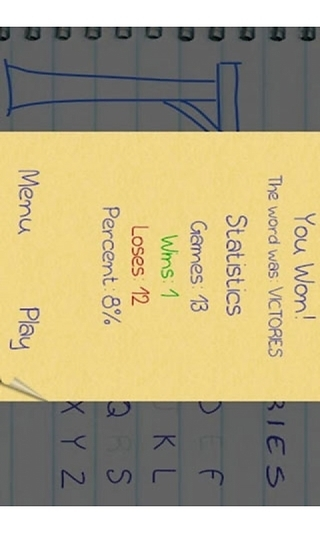 You Won!
The word was: VICTORIES
Statistics
Games: 13
Wins: 1
Loses: 12
Percent: 8%
Menu Play
RIES
D E F
K L
Q R S
X Y Z